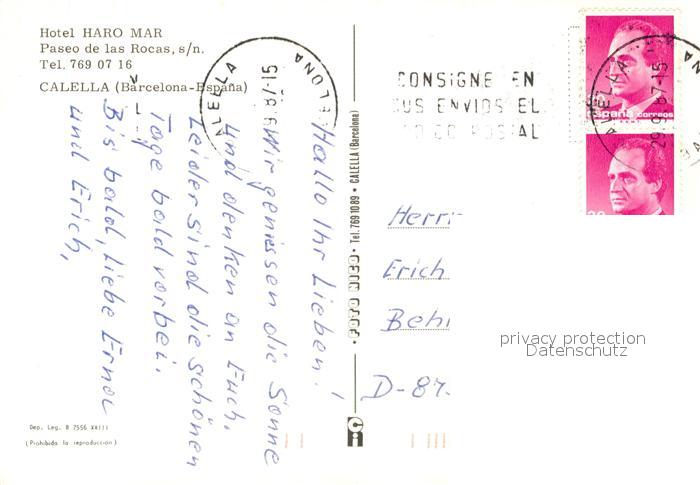 Hotel HARO MAR
Paseo de las Rocas, s/n.
Tel. 769 07 16
CALELLA (Barcelona-España)
Hallo Ihr Lieben!
Wir geniessen die Sonne
und denken an Euch.
Leider sind die schönen
Tage bald vorbei.
Bis bald, liebe Erna
und Erich,
Dep. Leg. B 7556 XXIII
(Prohibida la reproducción)
Tel. 769 10 89 · CALELLA (Barcelona)
CONSIGNE EN
SUS ENVIOS EL
POSTAL
29.9.87-15
España correos
Herrn
Erich
Behr
D-87.
privacy protection
Datenschutz